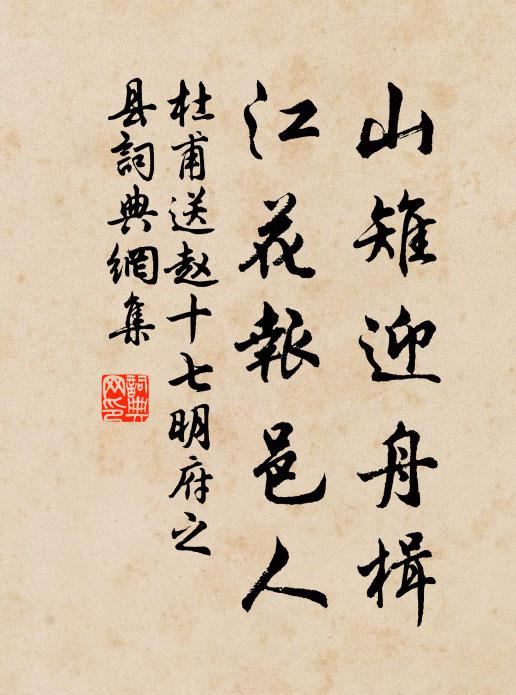 山雉迎舟楫
江花報邑人
杜甫送趙十七明府之
县詞典網集
詞典网印